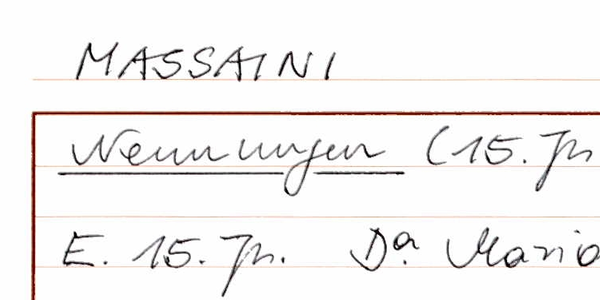 MASSAINI
Nennungen (15. Jh
E. 15. Jh. Dª. Maria